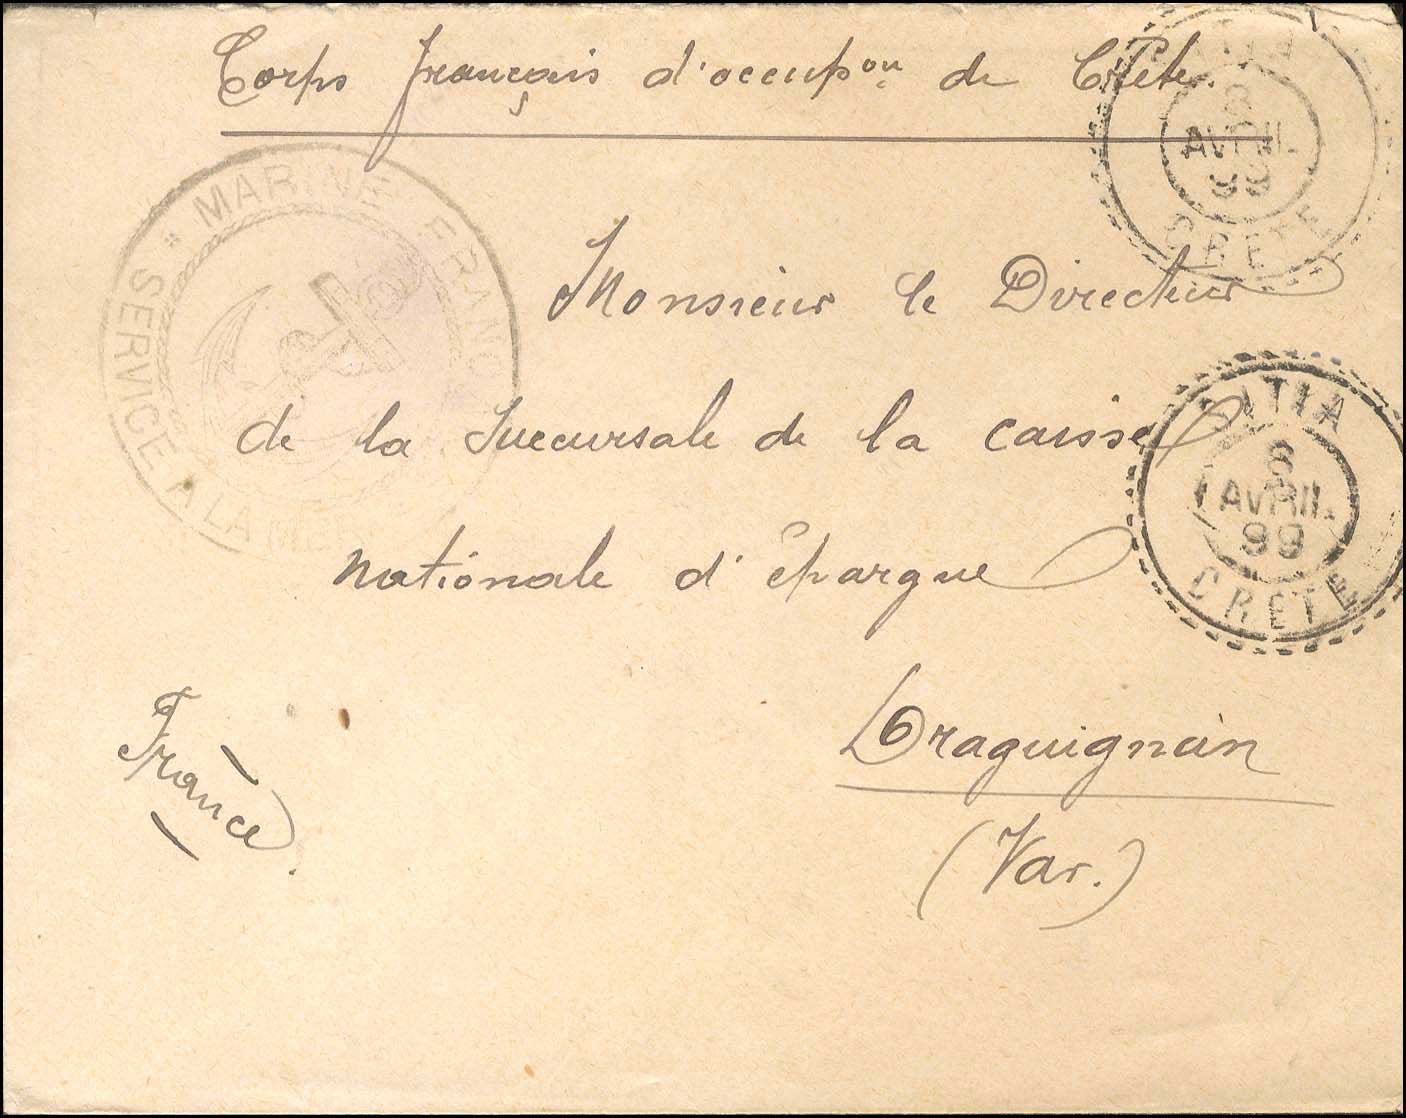 Corps français d'occup^on de Crète.
SITIA
8
AVRIL
99
CRETE
* MARINE FRANC
SERVICE A LA MER
Monsieur le Directeur
de la Succursale de la caisse
nationale d'épargne
SITIA
8
AVRIL
99
CRETE
Draguignan
(Var.)
France.